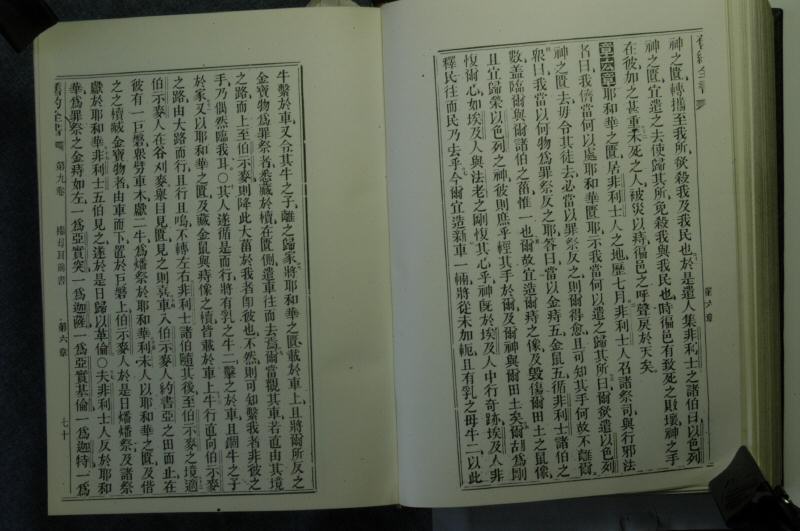 舊約全書
第六章
神之匱、轉攜至我所欲殺我及我民也、於是遣人集非利士之諸伯曰、以色列
神之匱宜遣之去、使歸其所、免殺我與我民也、時徧邑有致死之敗壞、神之手
在彼加之甚重、未死之人、被災以痔、徧邑之呼聲、戾於天矣、
第六章 耶和華之匱、居非利士人之地、歷七月、非利士人召諸祭司與行邪法
者曰、我儕當何以處耶和華匱耶、示我當何以遣之歸其所、曰、爾欲遣以色列
神之匱去、毋令其徒去、必當以罪祭反之、則爾得愈、且可知其手何故不離爾、
衆曰、我當以何物爲罪祭反之耶、答曰、當以金痔五、金鼠五、循非利士諸伯之
數、蓋臨爾與爾諸伯之菑、惟一也、故爾宜造爾痔之像、及毀傷爾田土之鼠像、
且宜歸榮以色列之神、彼則庶乎輕其手於爾、及爾神、與爾田土矣、爾胡爲剛
愎爾心、如埃及人與法老之剛愎其心乎、神旣於埃及人中行奇跡、埃及人非
釋民往、而民乃去乎、今爾宜造新車一輛、將從未加軛、且有乳之母牛二、以此
牛繫於車、又令其牛之子、離之歸家、將耶和華之匱、載於車上、且將爾所反之
金寶物爲罪祭者、悉藏於櫝、在匱側、遣車往而去焉、爾當觀其車、若直由其境
之路而上、至伯示麥、則降此大菑於我者、卽彼也、不然、則可知擊我者、非彼之
手、乃偶然臨我耳、○其人遂循是而行、將有乳之牛二、繫之於車、且閑牛之子
於家、又以耶和華之匱、及藏金鼠與痔像之櫝、皆載於車上、牛行直向伯示麥
之路、由大路而行、且行且鳴、不轉左右、非利士諸伯隨其後、至伯示麥之境、適
伯示麥人、在谷刈麥、舉目見匱、見之則喜、車入伯示麥人約書亞之田而止、在
彼有一巨磐、衆劈車木、獻二牛爲燔祭於耶和華、利未人以耶和華之匱、及偕
之之櫝、藏金寶物者、由車而下、置於巨磐上、伯示麥人於是日、燔燔祭及諸祭
獻於耶和華、非利士五伯見之、遂於是日歸以革倫、○夫非利士人反於耶和
華、爲罪祭之金痔如左、一爲亞實突、一爲迦薩、一爲亞實基倫、一爲迦特、一爲
舊約全書 第九卷 撒母耳前書 第六章 七十